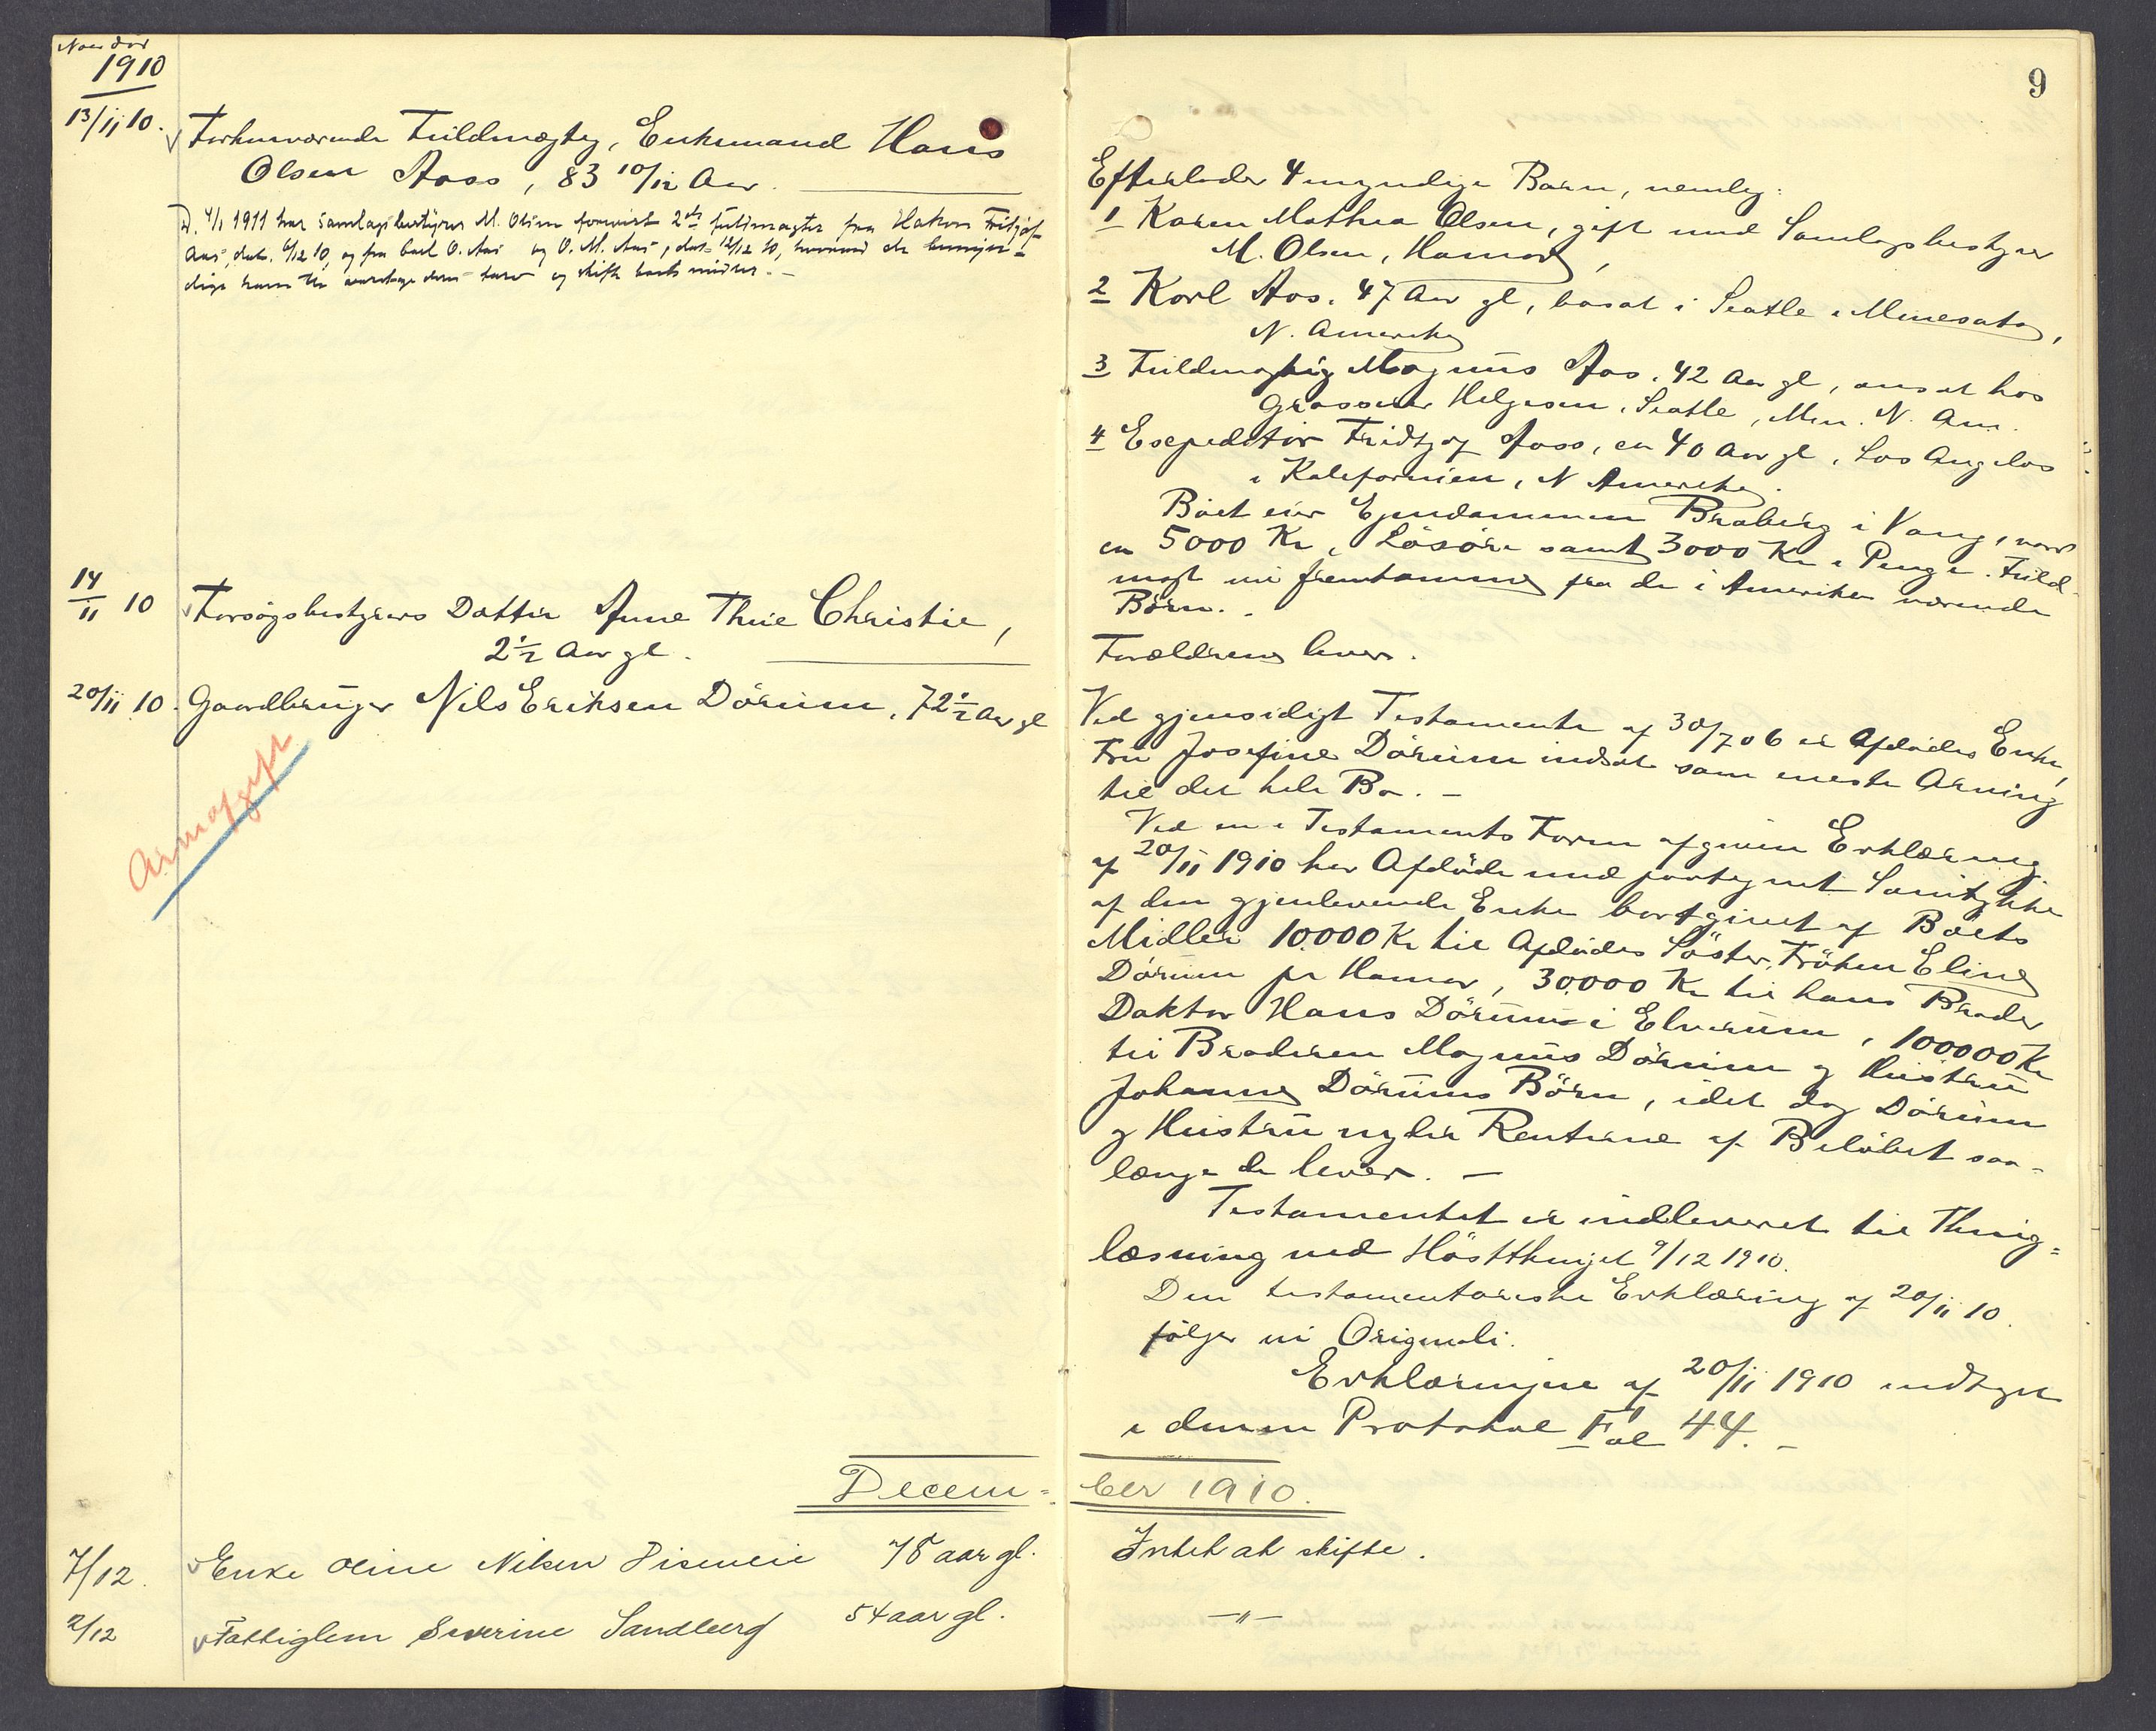 1910
13/11 10.
Forhenværende Fuldmægtig, Enkemand Hans
Olsen Aass, 83 10/12 Aar.
D. 4/1 1911 har samlagsbestyrer M. Olsen forevist 2de fuldmagter fra Hakon Fritjof
Aas, dat. 6/12 10, og fra Carl O. Aas og O. M. Aas, dat. 12/12 10, hvorved de bemyn-
diger ham til at varetage deres tarv og skifte boets midler. -
14/11 10
Forsøgsbestyrers Datter Anne Thrie Christie,
2 1/2 Aar gl.
20/11 10. Gaardbruger Nils Eriksen Dörum, 72 1/2 Aar gl
Arveafgift
Decem-
7/12. Enke Oline Nilsen Diseneie 78 aar gl.
2/12 Fattiglem Severine Sandberg 54 aar gl.
9
Efterlader 4 myndige Barn, nemlig:
1 Karen Mathea Olsen, gift med Samlagsbestyrer
M. Olsen, Hamar,
2 Karl Aas, 47 Aar gl, bosat i Seatle i Minesata,
N. Amerika
3 Fuldmægtig Magnus Aas, 42 Aar gl, ansat hos
Grosserer Helgesen, Seatle, Min. N. Am.
4 Expeditör Fridtjof Aass, ca 40 Aar gl, Los Angelos
i Kaliformien, N Amerika.
Boet eier Ejendommen Broberg i Vang, værd
ca 5000 Kr, Lösöre samt 3000 Kr i Penge. Fuld-
magt vil fremkomme fra de i Amerika værende
Börn.
Forældrene lever.
Ved gjensidigt Testamente af 30/7 06 er Afdødes Enke,
Fru Josefine Dörum indsat som eneste Arving
til det hele Bo. -
Ved en i Testaments Form afgiven Erklæring
af 20/11 1910 har Afdöde med paategnet Samtykke
af den gjenlevende Enke bortgivet af Boets
Midler 10000 Kr til Afdødes Söster, Fröken Eline
Dörum pr Hamar, 30.000 Kr til hans Broder
Doktor Hans Dörum i Elverum, 100000 Kr
til Broderen Magnus Dörum og Hustru
Johanne Dörums Börn, idet dog Dörum
og Hustru nyder Renterne af Belöbet saa-
længe de lever. -
Testamentet er indleveret til Thing-
læsning ved Höstthinget 9/12 1910.
Den testamentariske Erklæring af 20/11 10.
fölger in Originali.
Erklæringen af 20/11 1910 indtaget
i denne Protokol Fol 44. -
ber 1910.
Intet at skifte.
- " -